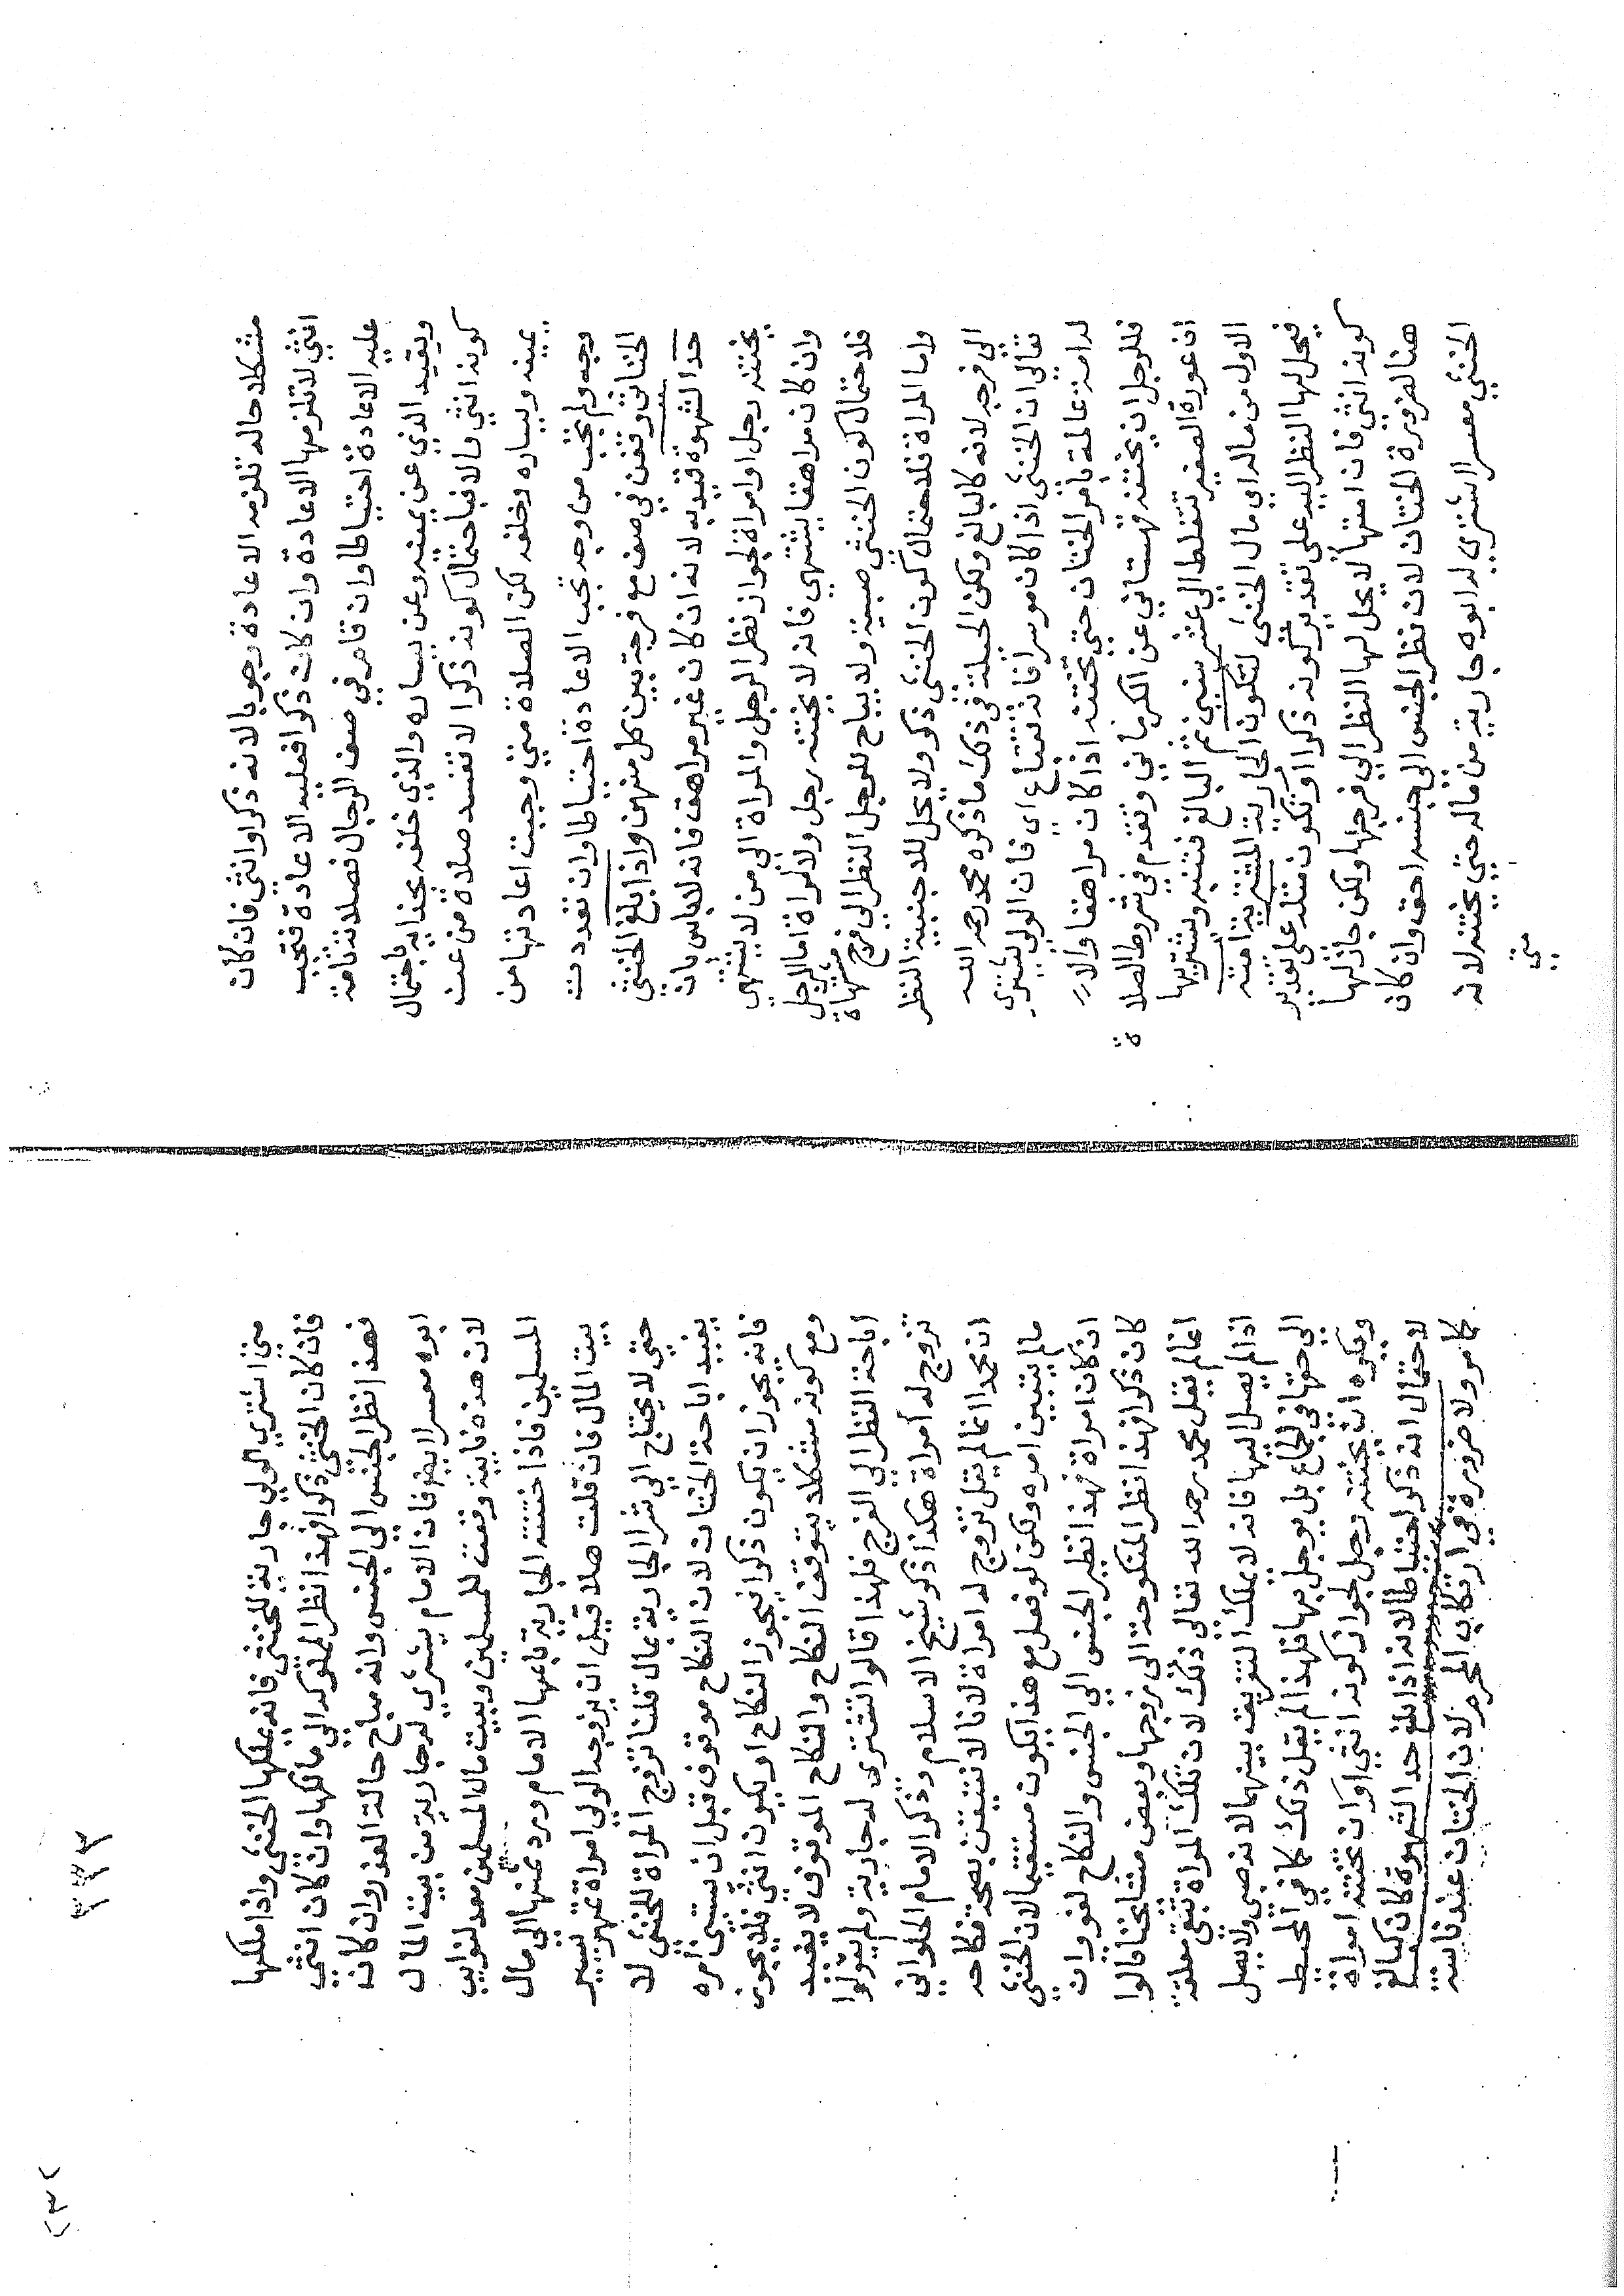 مشكلا حاله تلزمه الاعادة وجوبا لانه ذكر وانثى فان كان
انثى لا تلزمها الاعادة وان كان ذكرا فعليه الاعادة فتجب
عليه الاعادة احتياطا وان قام في صف الرجال فصلاته تامة
ويعيد الذي عن يمينه وعن يساره والذي خلفه بحذايه باحتمال
كونه انثى والا فباحتمال كونه ذكرا لا تفسد صلاة من عن
يمينه ويساره وخلفه لكن الصلاة متى وجبت اعادتها من
وجه ولم تجب من وجه تجب الاعادة احتياطا وان تعددت
الخناثى وتقف في صف مع فرجة بين كل منهن واذا بلغ الخنثى
حد الشهوة قيد به لانه ان كان غير مراهق فانه لا باس بان
يختنه رجل او امراة لجواز نظر الرجل والمراة الى من لا يشتهى
وان كان مراهقا يشتهي فانه لا يختنه رجل ولا امراة اما الرجل
فلاحتمال كون الخنثى صبية ولا يباح للرجل النظر الى فرج مشتهاة
واما المراة فلاحتمال كون الخنثى ذكر ولا يحل للاجنبية النظر
الى فرجه لانه كالبالغ ولكن الحيلة في ذلك ما ذكره محمد رحمه الله
تعالى ان الخنثى اذا كان موسرا فانه تبتاع اى فان الولي يشترى
له امة عالمة بامر الختان حتى تختنه اذا كان مراهقا والا
فللرجل ان يختنه قهستاني عن الكرماني وتقدم في شروط الصلاة
ان عورة الصغير تتغلظ الى عشر سنين ثم البالغ فتنبه ويشتريها
الاول من ماله اي مال الخنثى لتكون الجارية المشترية امته
فيحل لها النظر اليه على تقدير كونه ذكرا او تكون مثله على تقدير
كونه انثى فان امتها لا يحل لها النظر الى فرجها ولكن جاز لها
هنا لضرورة الختان لان نظر الجنس الى جنسه احق وان كان
الخنثى معسرا اشترى له ابوه جارية من ماله حتى تختنه لانه
متى
متى اشترى الولي جارية للخنثى فانه يملكها الخنثى واذا ملكها
فان كان الخنثى ذكرا فهذا نظر المملوكه الى مالكها وان كان انثى
فهذا نظر الجنس الى الجنس وانه مباح حالة العذر وان كان
ابوه معسرا ايضا فان الامام يشترى له جارية من بيت المال
لان هذه نايبة وقعت للمسلمين وبيت مال المسلمين معد لنوايب
المسلمين فاذا ختنته الجارية باعها الامام ورد ثمنها الى مال
بيت المال فان قلت هلا قيل ان يزوجه الولي امراة بمهر يسير
حتى لا يحتاج الى شرا الجارية بمال قلنا تزوج المراة للخنثى لا
يفيد اباحة الختان لان النكاح موقوف قبل ان يتبين امره
فانه يجوز ان يكون ذكرا فيجوز النكاح او يكون انثى فلا يجوز
ومع كونه مشكلا يتوقف النكاح والنكاح الموقوف لا يفيد
اباحة النظر الى الفرج فلهذا قالوا تشترى له جارية ولم يقولوا
تزوج له امراة هكذا ذكر شيخ الاسلام وذكر الامام الحلواني
ان محمدا انما لم يقل تزوج له امراة لانا لا نتيقن بصحة نكاحه
مالم يتبين امره ولكن لو فعل مع هذا يكون مستقيما لان الخنثى
ان كان امراة فهذا نظير الجنس الى الجنس والنكاح لغو وان
كان ذكرا فهذا نظر المنكوحة الى زوجها وبعض مشايخنا قالوا
انما لم يقل محمد رحمه الله تعالى ذلك لان تلك المراة تبقى معلقة
اذا لم يصل اليها فانه لا يملك التفريق بينهما لانه صبي ولا يصل
الى حقها في الجماع بل يوجل بها فلهذا لم يقل ذلك كما في المحيط
ويكره ان يختنه رجل لجواز كونه انثى او ان تختنه امراة
لاحتمال انه ذكر احتياطا لانه اذا بلغ حد الشهوة كان كبالغ
كما مر ولا ضرورة في ارتكاب المحرم لان الختان عندنا سنة
٢٣٢